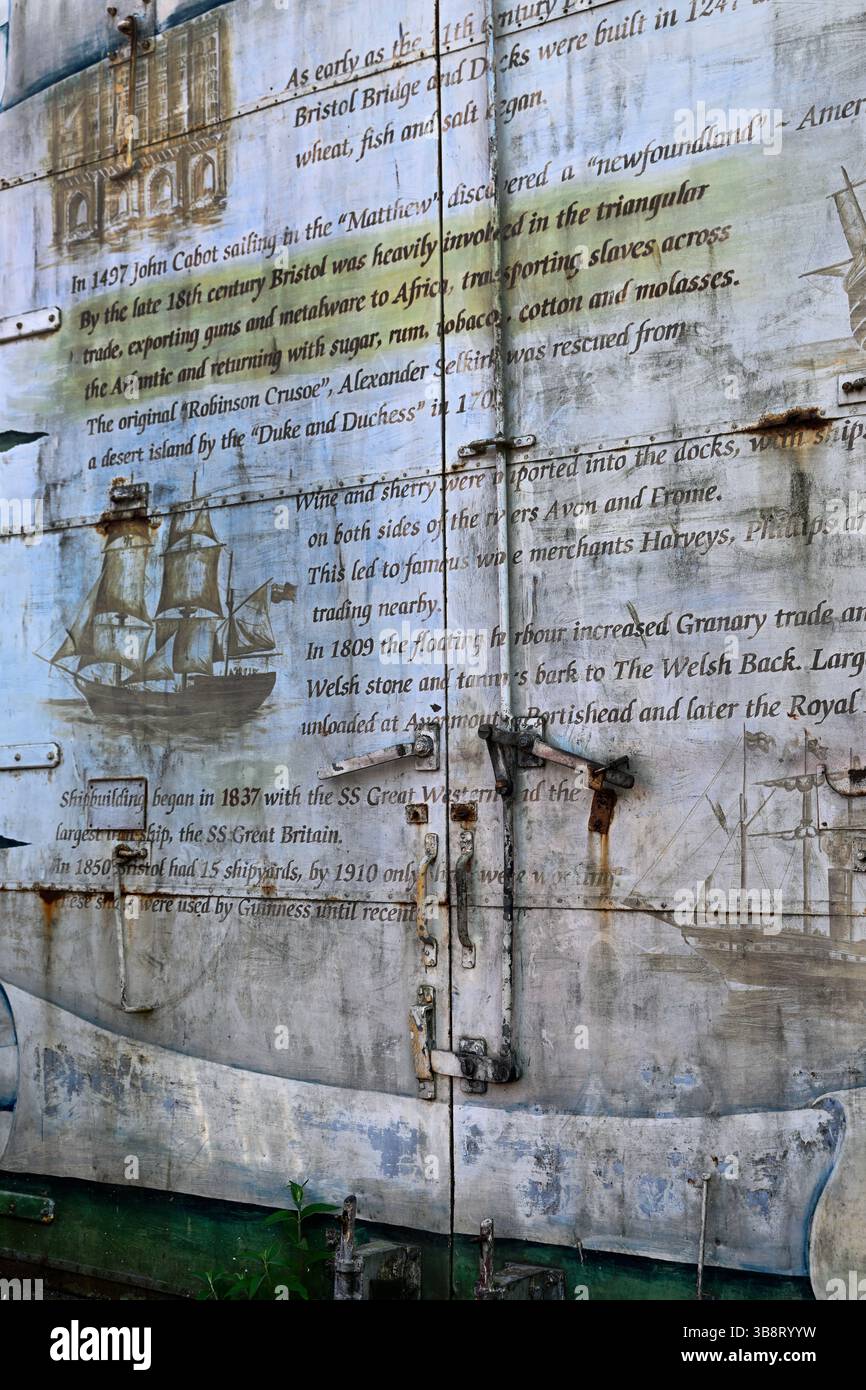 As early as the 11th century
Bristol Bridge and Docks were built in 1247
wheat, fish and salt began.
In 1497 John Cabot sailing in the "Matthew" discovered a "newfoundland" - Amer
By the late 18th century Bristol was heavily involved in the triangular
trade, exporting guns and metalware to Africa, transporting slaves across
the Atlantic and returning with sugar, rum, tobacco, cotton and molasses.
The original "Robinson Crusoe", Alexander Selkirk was rescued from
a desert island by the "Duke and Duchess" in 170
Wine and sherry were imported into the docks, with ship
on both sides of the rivers Avon and Frome.
This led to famous wine merchants Harveys, Phillips a
trading nearby.
In 1809 the floating harbour increased Granary trade an
Welsh stone and tanners bark to The Welsh Back. Larg
unloaded at Avonmouth, Portishead and later the Royal
Shipbuilding began in 1837 with the SS Great Western and the
largest iron ship, the SS Great Britain.
In 1850 Bristol had 15 shipyards, by 1910 only were working
these sheds were used by Guinness until recent
alamy
alamy
Image ID: 3B8RYYW
www.alamy.com